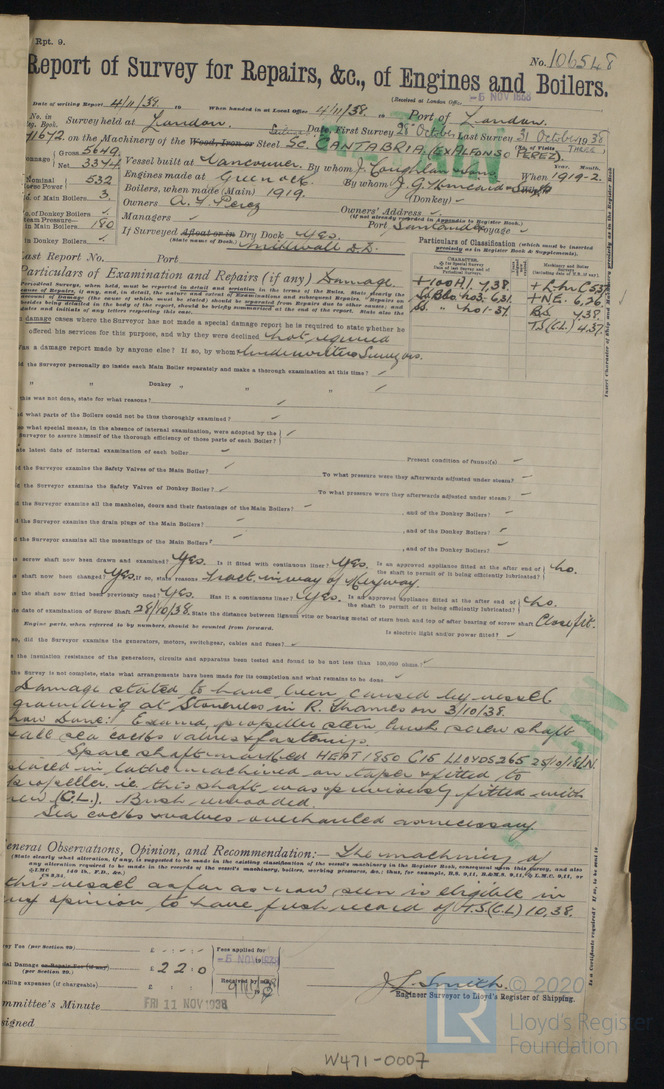 Rpt. 9.
No. 106548
Report of Survey for Repairs, &c., of Engines and Boilers.
(Received at London Office -5 NOV 1938
Date of writing Report 4/11/38. 19 When handed in at Local Office 4/11/38. 19 Port of London.
No. in Survey held at London Date, First Survey 28 October Last Survey 31 October 1938
Reg. Book.
71672. on the Machinery of the Wood, Iron or Steel Sc. CANTABRIA (EX ALFONSO PEREZ). (No. of Visits THREE)
Gross 5649
Net 3374
Vessel built at Vancouver. By whom J. Coughlan & Sons When 1919-2.
Year. Month.
Nominal Horse Power 532
Engines made at Greenock. By whom J. G. Kincaid
No. of Main Boilers 3
Boilers, when made (Main) 1919. (Donkey) ✓
Owners A. F. Perez Owners' Address ✓
(if not already recorded in Appendix to Register Book.)
No. of Donkey Boilers ✓
Steam Pressure in Main Boilers 180
Managers ✓ Port Santander Voyage ✓
in Donkey Boilers ✓
If Surveyed Afloat or in Dry Dock Yes.
(State name of Dock.) Millwall D.D.
Particulars of Classification (which must be inserted precisely as in Register Book & Supplements).
Last Report No. Port
Particulars of Examination and Repairs (if any) Damage.
+100A1. 7,38.
+LMC 5,37
+NE. 6,26
BS 7,38.
TS(CL) 4.37.
damage cases where the Surveyor has not made a special damage report he is required to state whether he
offered his services for this purpose, and why they were declined Not required
Was a damage report made by anyone else? If so, by whom Underwriters Surveyors.
Did the Surveyor personally go inside each Main Boiler separately and make a thorough examination at this time? ✓
" " Donkey " " " ✓
this was not done, state for what reasons? ✓
And what parts of the Boilers could not be thus thoroughly examined? ✓
what special means, in the absence of internal examination, were adopted by the Surveyor to assure himself of the thorough efficiency of those parts of each Boiler? ✓
State latest date of internal examination of each boiler ✓ Present condition of funnel(s) ✓
Did the Surveyor examine the Safety Valves of the Main Boiler? ✓ To what pressure were they afterwards adjusted under steam? ✓
Did the Surveyor examine the Safety Valves of Donkey Boiler? ✓ To what pressure were they afterwards adjusted under steam? ✓
Did the Surveyor examine all the manholes, doors and their fastenings of the Main Boilers? ✓ , and of the Donkey Boilers? ✓
Did the Surveyor examine the drain plugs of the Main Boilers? ✓ , and of the Donkey Boilers? ✓
Did the Surveyor examine all the mountings of the Main Boilers? ✓ , and of the Donkey Boilers? ✓
screw shaft now been drawn and examined? Yes. Is it fitted with continuous liner? Yes. Is an approved appliance fitted at the after end of the shaft to permit of it being efficiently lubricated? No.
shaft now been changed? Yes. If so, state reasons Fract. in way of Keyway.
the shaft now fitted been previously used? Yes. Has it a continuous liner? Yes. Is an approved appliance fitted at the after end of the shaft to permit of it being efficiently lubricated? No.
State date of examination of Screw Shaft 28/10/38. State the distance between lignum vitæ or bearing metal of stern bush and top of after bearing of screw shaft Close fit.
Engine parts, when referred to by numbers, should be counted from forward. Is electric light and/or power fitted? ✓
so, did the Surveyor examine the generators, motors, switchgear, cables and fuses? ✓
the insulation resistance of the generators, circuits and apparatus been tested and found to be not less than 100,000 ohms? ✓
the Survey is not complete, state what arrangements have been made for its completion and what remains to be done ✓
Damage stated to have been caused by vessel
grounding at Stoneness in R. Thames on 3/10/38.
Now Done: Examd. propeller stern bush screw shaft
& all sea cocks valves & fastenings.
Spare shaft marked HEAT 1850 C15 LLOYDS 265 25/10/18 LN
placed in lathe machined on taper & fitted to
propeller ie this shaft was previously fitted with
new (C.L.). Bush rewooded.
Sea cocks & valves overhauled as necessary.
General Observations, Opinion, and Recommendation:— The machinery of
(State clearly what alteration, if any, is suggested to be made in the existing classification of the vessel's machinery in the Register Book, consequent upon this survey, and also any alteration required to be made in the records of the vessel's machinery, boilers, working pressures, &c.; thus, for example, B.S. 9,11, B.&M.S. 9,11, L.M.C. 9,11, or
this vessel as far as now seen is eligible in
my opinion to have fresh record of T.S.(C.L) 10,38.
Survey Fee (per Section 29) £
Special Damage or Repair Fee (if any) £ 2 2 0
(per Section 29.)
Travelling expenses (if chargeable) £
Fees applied for
-5 NOV 1938
Received by me,
J L Smith.
Engineer Surveyor to Lloyd's Register of Shipping.
Committee's Minute FRI 11 NOV 1938
Assigned
© 2020
LR
Lloyd's Register
Foundation
W471-0007